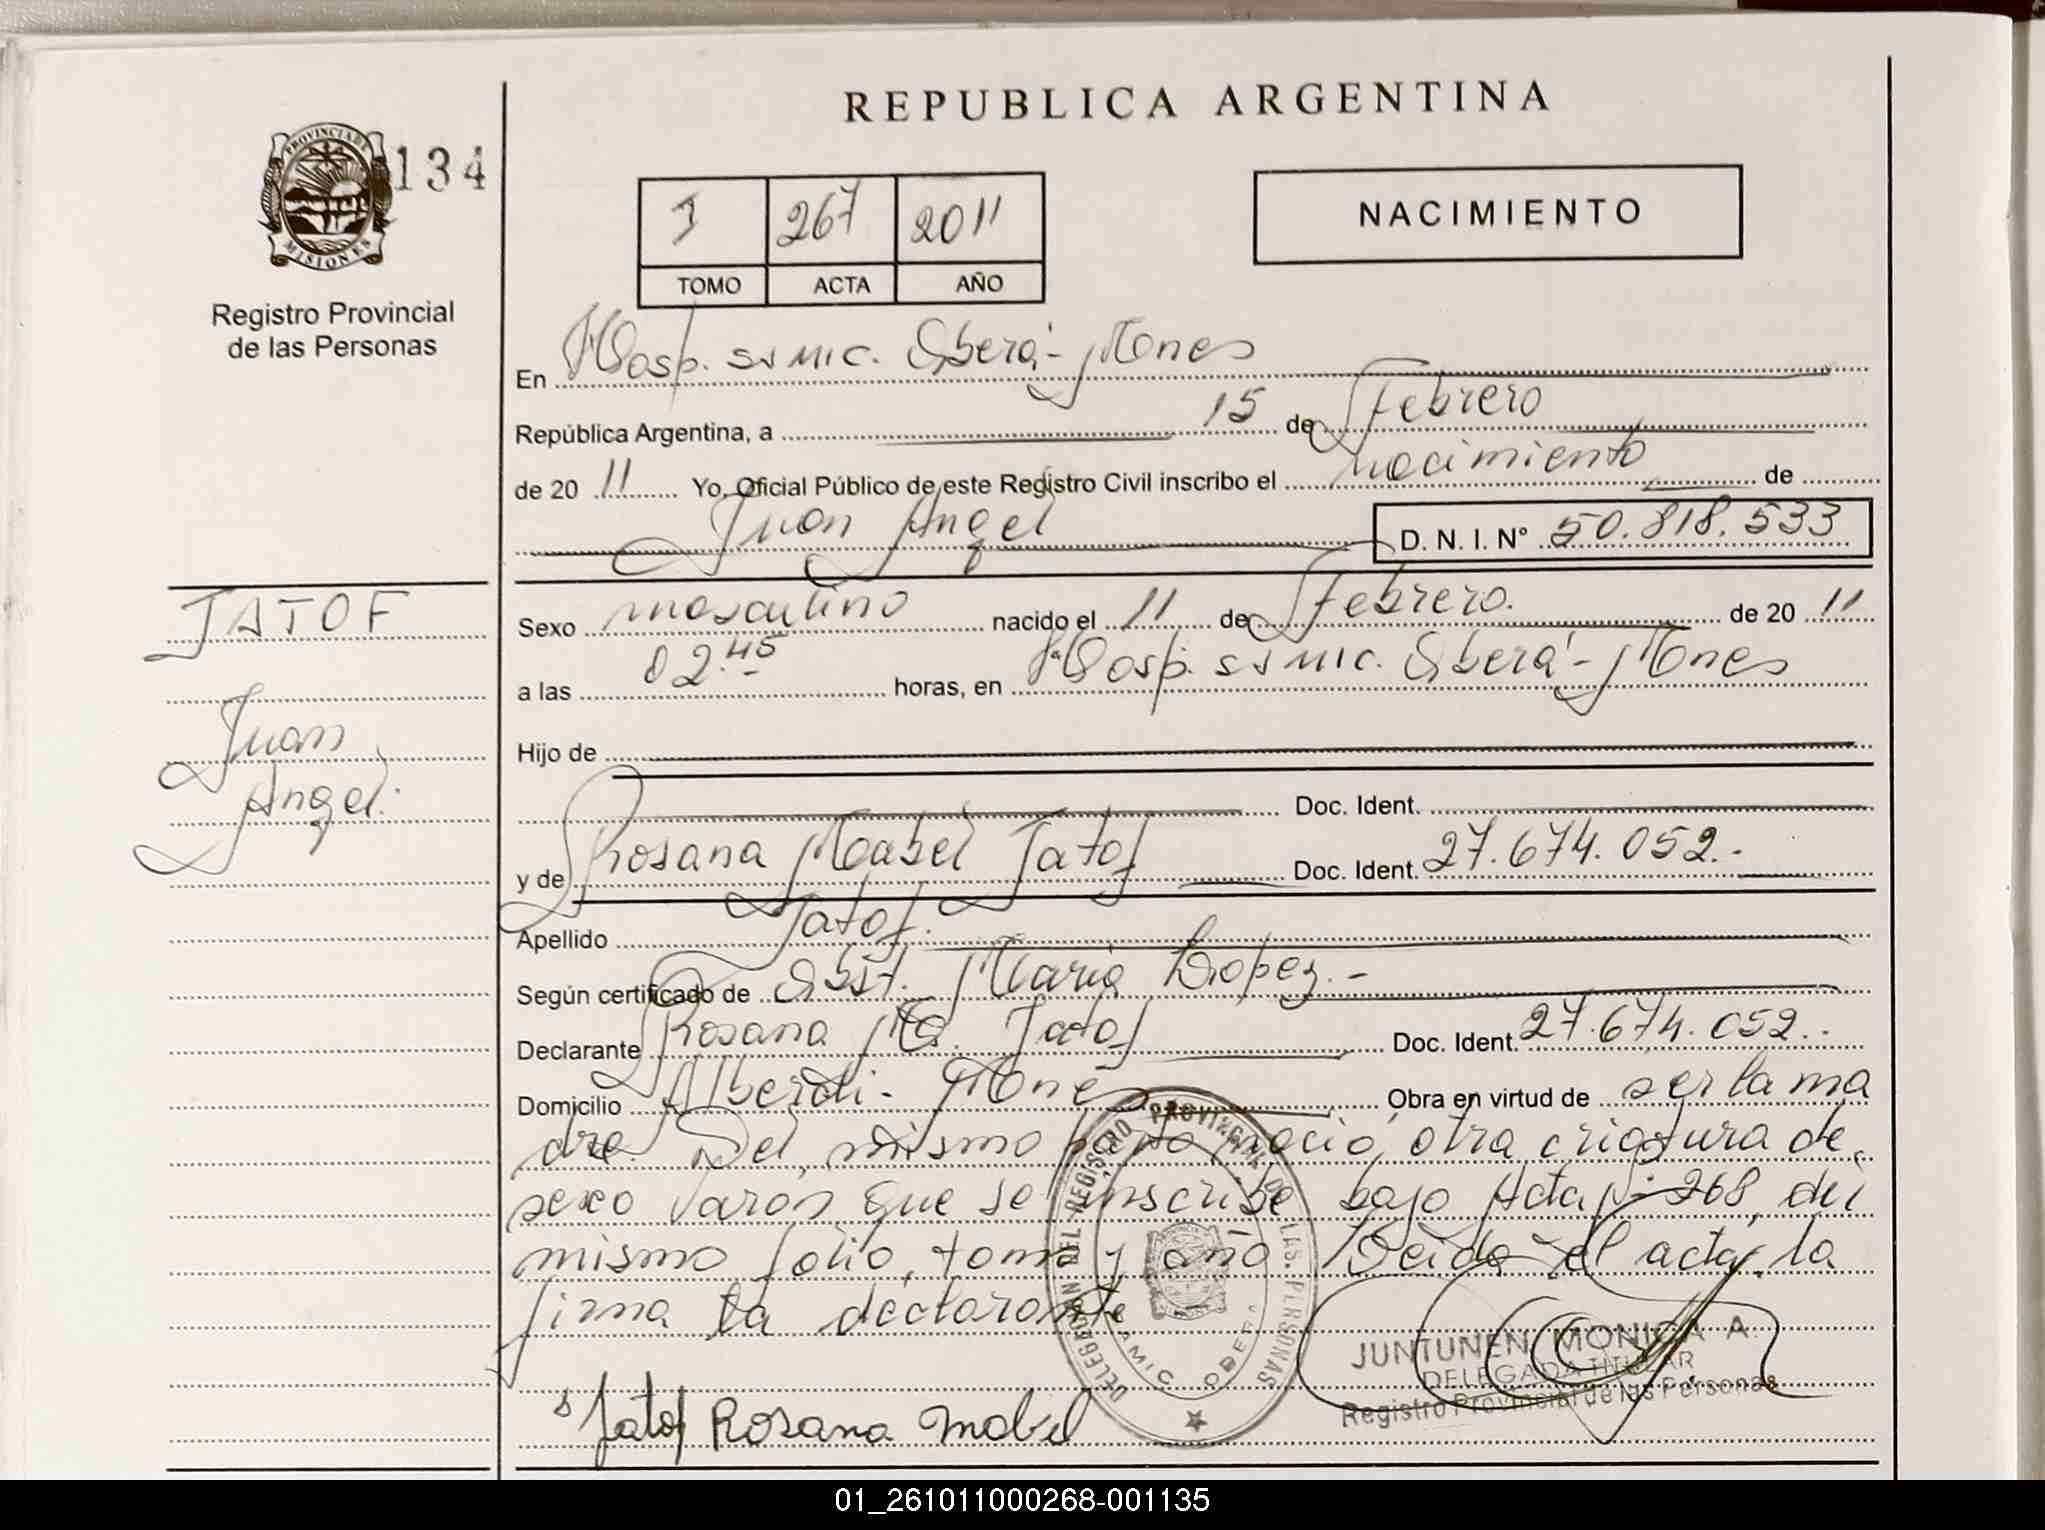 REPUBLICA ARGENTINA
PROVINCIA DE
MISIONES
134
Registro Provincial
de las Personas
I 267 2011
TOMO ACTA AÑO
NACIMIENTO
En Hosp. SS MIC. Oberá - Mones
República Argentina, a 15 de Febrero
de 20 11 Yo, Oficial Público de este Registro Civil inscribo el nacimiento de
Juan Angel D. N. I. N° 50.818.533
JATOF
Juan
Angel.
Sexo masculino nacido el 11 de Febrero. de 20 11
a las 02.45 horas, en Hosp. SS MIC. Oberá - Mones
Hijo de
Doc. Ident.
y de Rosana Mabel Jatof Doc. Ident. 27.674.052.-
Apellido Jatof.
Según certificado de Obst. Maria Lopez.-
Declarante Rosana M. Jatof Doc. Ident. 27.674.052.-
Domicilio Alberdi - Mones Obra en virtud de ser la ma
dre. Del mismo parto nació otra criatura de
sexo varón que se inscribe bajo Acta N° 268, del
mismo folio, tomo y año Leída el acta, la
firma la declarante
Jatof Rosana Mabel
DELEGACIÓN DEL REGISTRO PROVINCIAL DE LAS PERSONAS
JUNTUNEN MONICA A.
DELEGADA TITULAR
Registro Provincial de las Personas
01_261011000268-001135